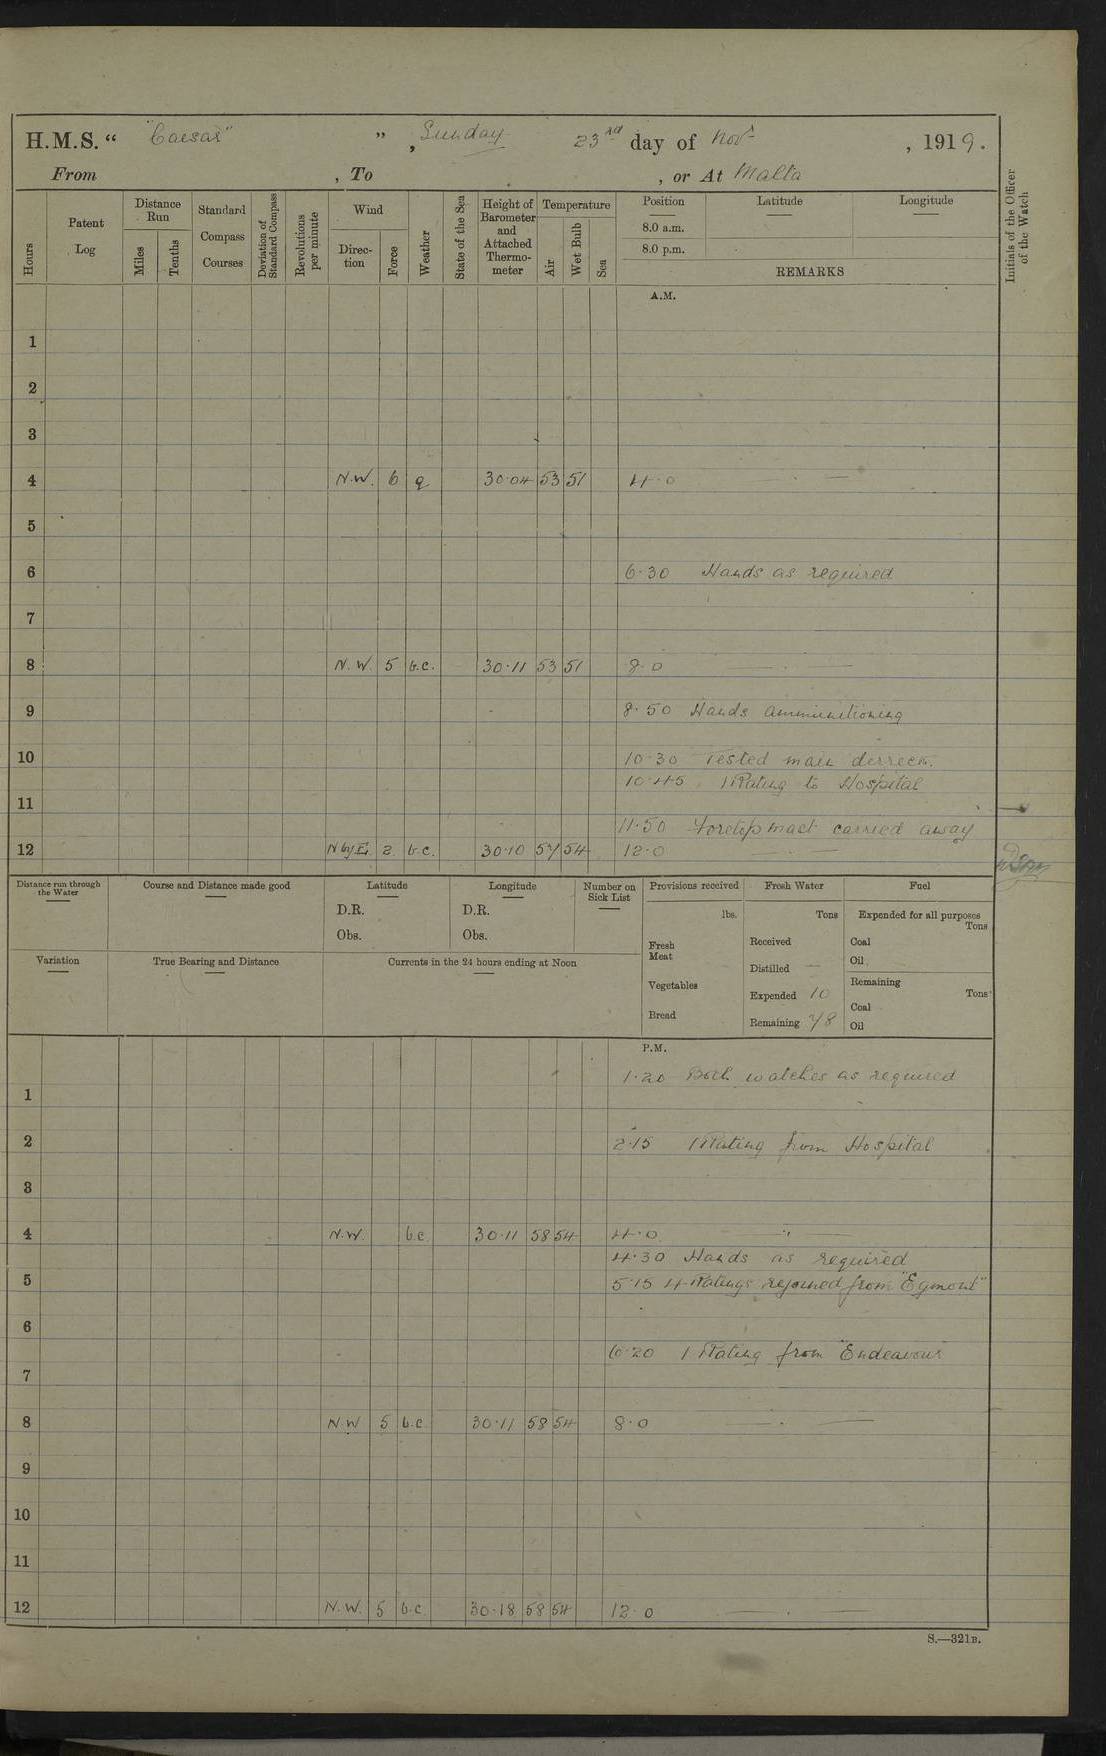 H.M.S. “ "Caesar" ” , Sunday 23rd day of Novr , 1919.
From , To , or At Malta
Hours
Patent Log
Distance Run
Miles
Tenths
Standard Compass Courses
Deviation of Standard Compass
Revolutions per minute
Wind
Direction
Force
Weather
State of the Sea
Height of Barometer and Attached Thermometer
Temperature
Air
Wet Bulb
Sea
Position Latitude Longitude
8.0 a.m.
8.0 p.m.
REMARKS
Initials of the Officer of the Watch
A.M.
1
2
3
4 N.W. 6 q 30.04 53 51 4.0
5
6 6.30 Hands as required
7
8 N.W. 5 b.c. 30.11 53 51 8.0
9 8.50 Hands ammunitioning
10 10.30 Tested main derrick.
10.45 1 Rating to Hospital
11
11.50 Foretopmast carried away
12 N by E. 2 b.c. 30.10 57 54 12.0
Distance run through the Water
Course and Distance made good
Latitude
D.R.
Obs.
Longitude
D.R.
Obs.
Number on Sick List
Provisions received
lbs.
Fresh Meat
Vegetables
Bread
Fresh Water
Tons
Received
Distilled —
Expended 10
Remaining 78
Fuel
Expended for all purposes
Tons
Coal
Oil
Remaining
Tons
Coal
Oil
Variation
True Bearing and Distance
Currents in the 24 hours ending at Noon
P.M.
1.20 Both watches as required
1
2 2.15 1 Rating from Hospital
3
4 N.W. b.c 30.11 58 54 4.0
4.30 Hands as required
5 5.15 4 Ratings rejoined from "Egmont"
6
6.20 1 Rating from "Endeavour"
7
8 N.W 5 b.c 30.11 58 54 8.0
9
10
11
12 N.W. 5 b.c 30.18 58 54 12.0
S.—321B.